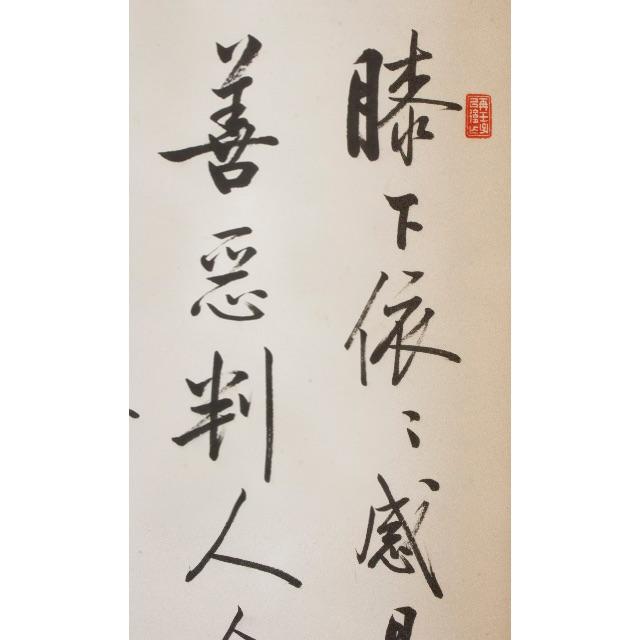 膝下依〻感
善惡判人